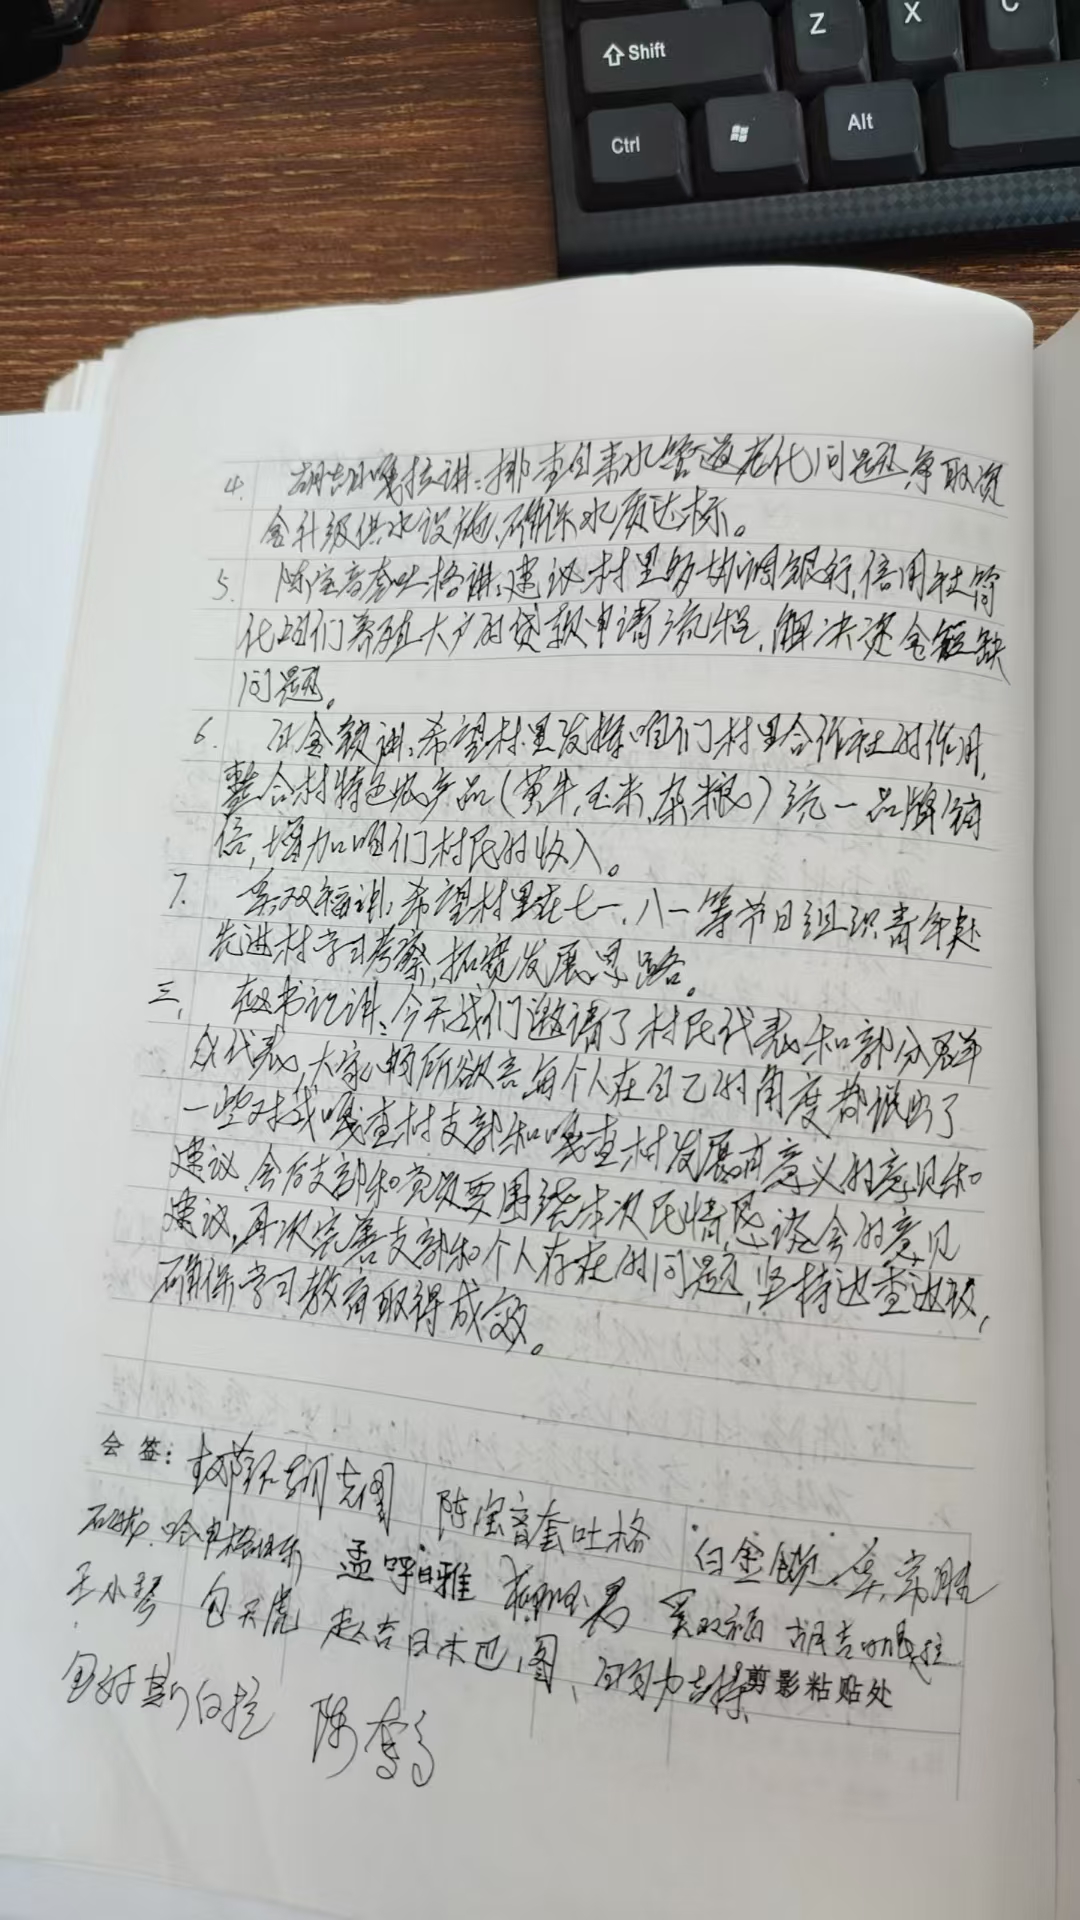 Shift
Z
X
C
Ctrl
Alt
4. 胡吉力嘎拉讲:排查自来水管道老化问题,争取资
金升级供水设施,确保水质达标。
5. 陈宝音套吐格讲:建议村里多协调银行,信用社简
化咱们养殖大户的贷款申请流程,解决资金短缺
问题。
6. 白金锁讲:希望村里发挥咱们村里合作社的作用,
整合村特色农产品(黄牛,玉米,杂粮)统一品牌销
售,增加咱们村民的收入。
7. 双福讲:希望村里在七一、八一等节日组织青年赴
先进村学习考察,拓宽发展思路。
三、书记讲:今天我们邀请了村民代表和部分群
众代表,大家畅所欲言,每个人在自己的角度都说出了
一些对我嘎查村支部和嘎查村发展有意义的意见和
建议,会后支部和党员要围绕本次民情恳谈会的意见
建议,再次完善支部和个人存在的问题,坚持边查边改,
确保学习教育取得成效。
会 签: 陈宝音套吐格 白金锁 常胜
孟呼日雅 双福 胡吉力嘎拉
王小琴 包天虎 赵吉日木巴图
剪影粘贴处
陈